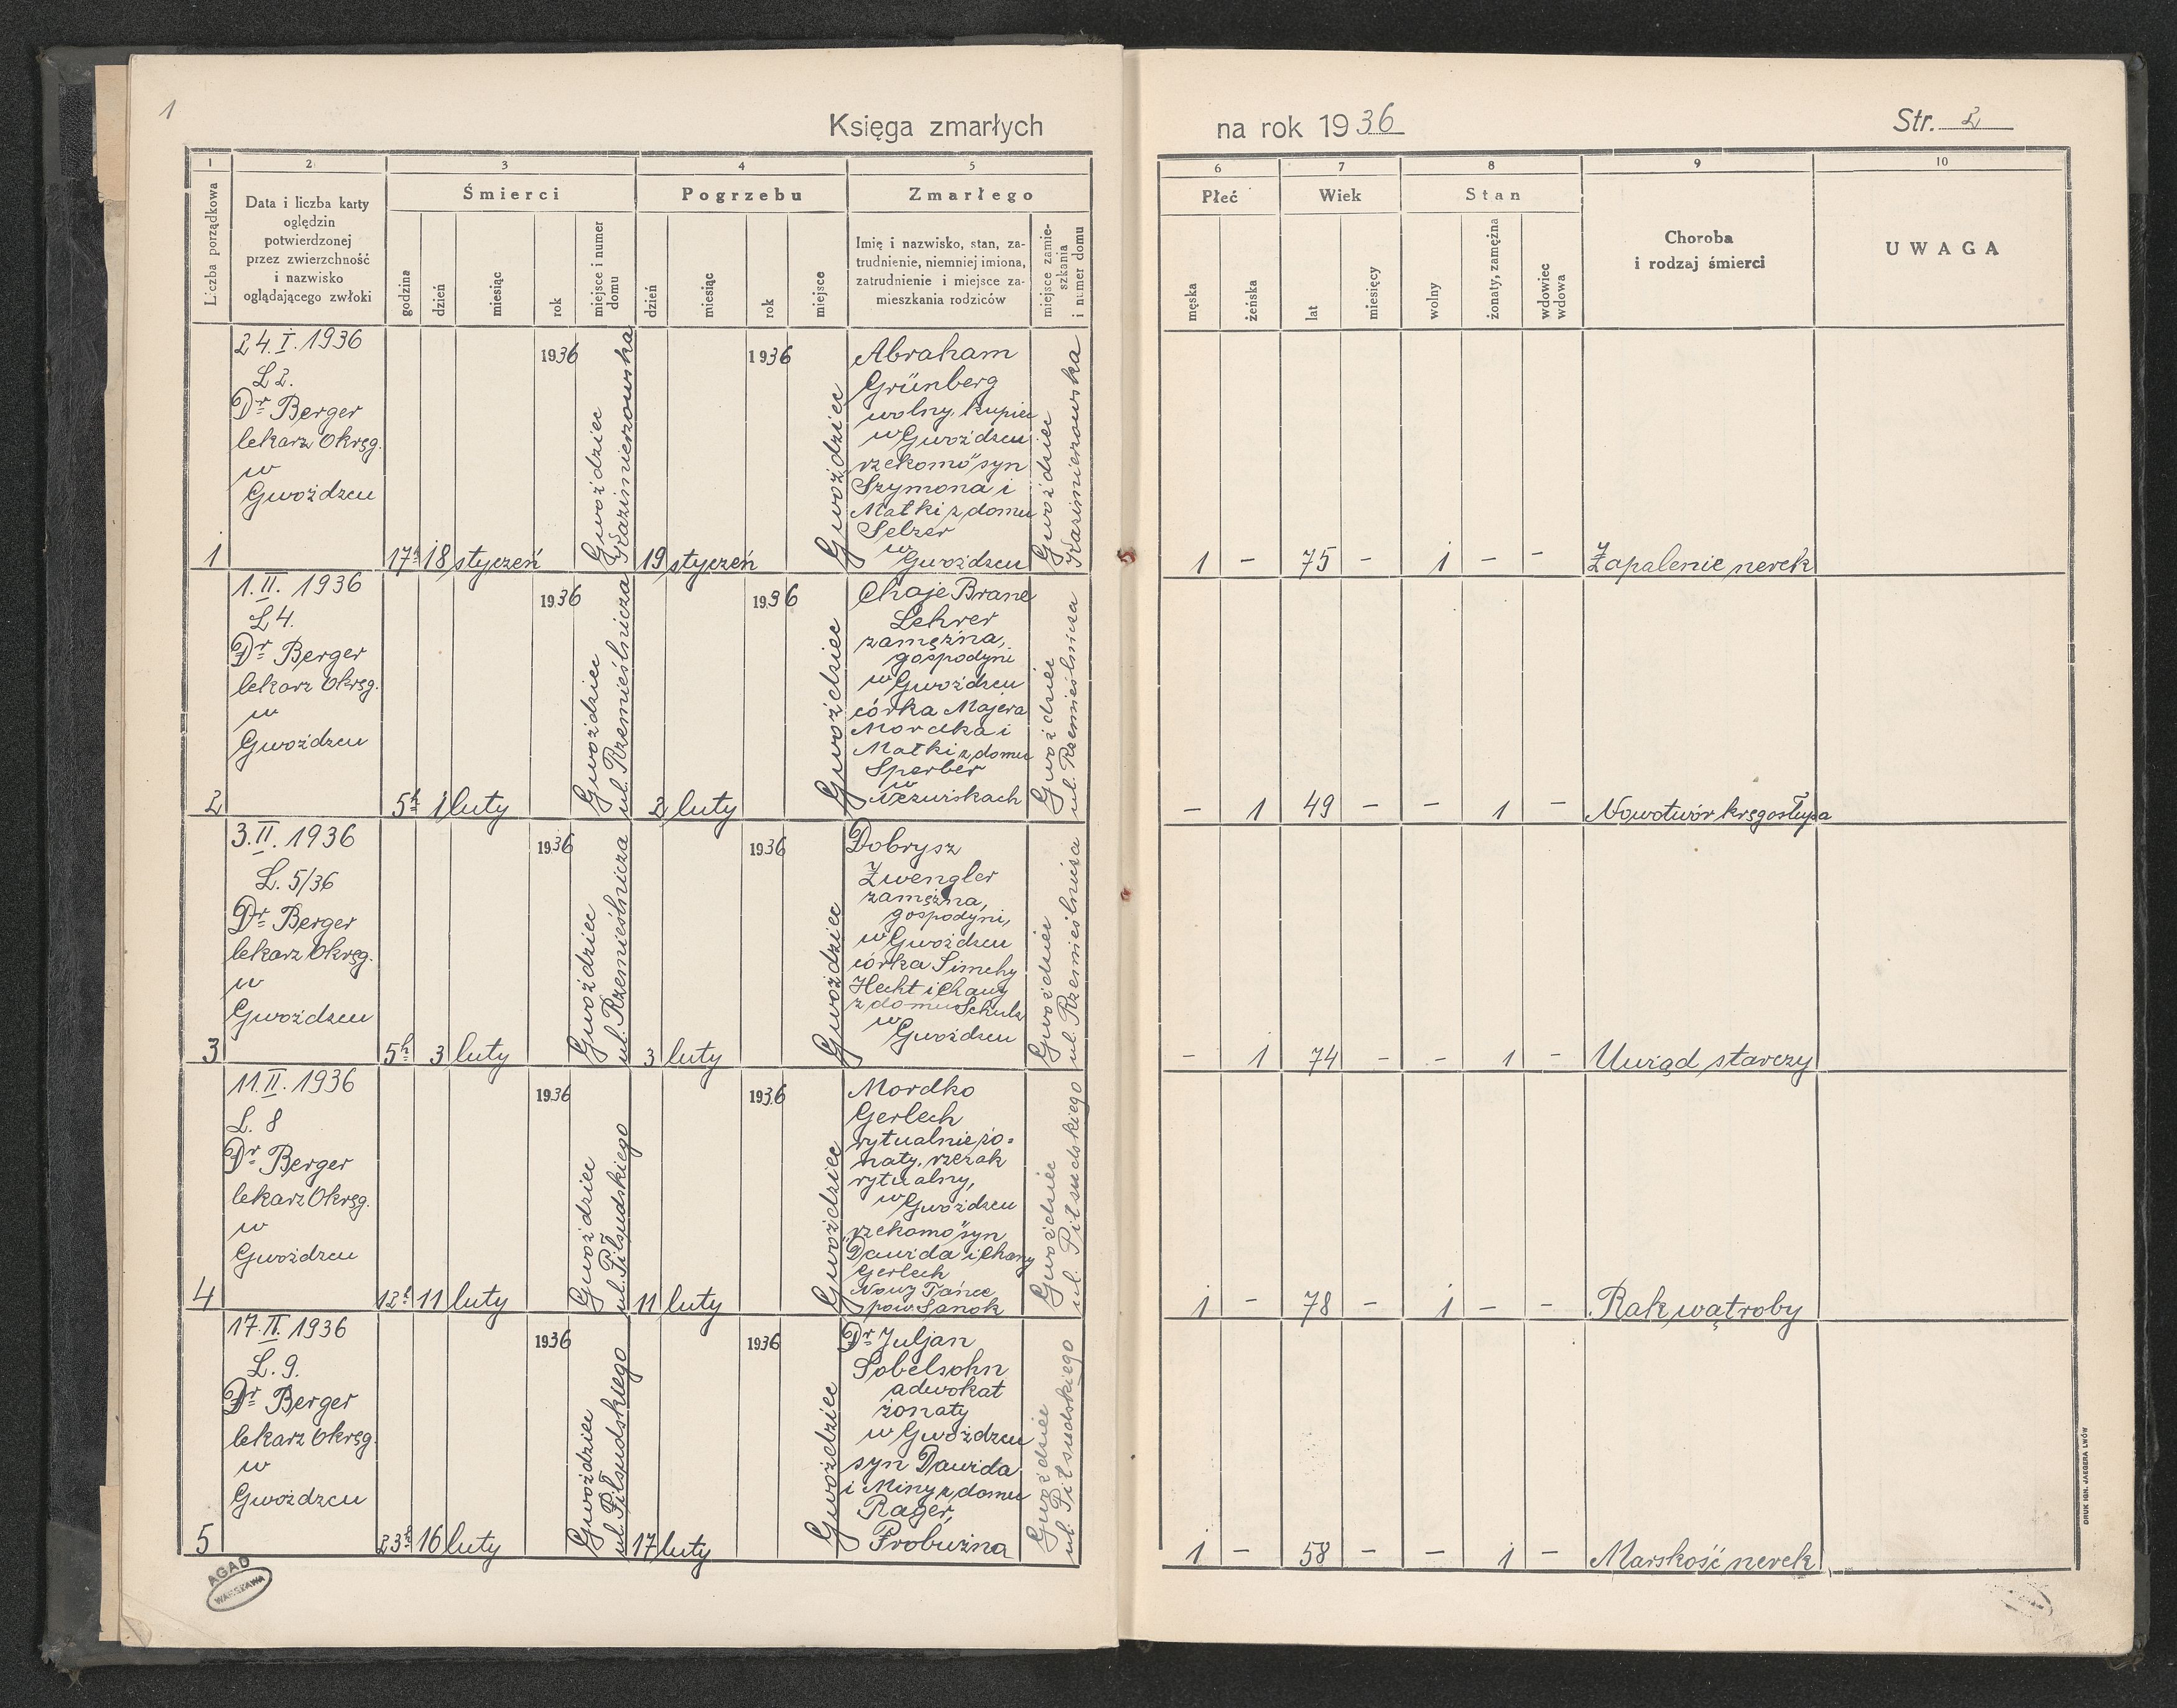 1
Księga zmarłych
na rok 1936
Str. 2
1
2
3
4
5
6
7
8
9
10
Liczba porządkowa
Data i liczba karty
oględzin
potwierdzonej
przez zwierzchność
i nazwisko
oglądającego zwłoki
Śmierci
godzina
dzień
miesiąc
rok
miejsce i numer
domu
Pogrzebu
dzień
miesiąc
rok
miejsce
Zmarłego
Imię i nazwisko, stan, za-
trudnienie, niemniej imiona,
zatrudnienie i miejsce za-
mieszkania rodziców
miejsce zamie-
szkania
i numer domu
Płeć
męska
żeńska
Wiek
lat
miesięcy
Stan
wolny
żonaty, zamężna
wdowiec
wdowa
Choroba
i rodzaj śmierci
UWAGA
1
24.I.1936
L 2.
Dr Berger
lekarz Okręg.
w
Gwoźdzcu
17h 18 styczeń 1936
Gwoździec
ul. Kazimierzowska
19 styczeń 1936
Gwoździec
Abraham
Grünberg
wolny, kupiec
w Gwoźdzcu
rzekomo" syn
Szymona i
Matki z domu
Selzer
w
Gwoźdzcu
Gwoździec
Kazimierzowska
1 - 75 - 1 - -
Zapalenie nerek
2
1.II.1936
L 4.
Dr Berger
lekarz Okręg.
w
Gwoźdzcu
5h 1 luty 1936
Gwoździec
ul. Rzemieślnicza
2 luty 1936
Gwoździec
Chaje Brane
Lehrer
zamężna,
gospodyni
w Gwoźdzcu
córka Majera
Mordka i
Matki z domu
Sperber
w
Niezwiskach
Gwoździec
ul. Rzemieślnicza
- 1 49 - - 1 -
Nowotwór kręgosłupa
3
3.II.1936
L. 5/36
Dr Berger
lekarz Okręg.
w
Gwoźdzcu
5h 3 luty 1936
Gwoździec
ul. Rzemieślnicza
3 luty 1936
Gwoździec
Dobrysz
Zwengler
zamężna,
gospodyni,
w Gwoźdzcu
córka Simchy
Hecht i Chany
z domu Schulz
w
Gwoźdzcu
Gwoździec
ul. Rzemieślnicza
- 1 74 - - 1 -
Uwiąd starczy
4
11.II.1936
L. 8
Dr Berger
lekarz Okręg.
w
Gwoźdzcu
12h 11 luty 1936
Gwoździec
ul. Piłsudskiego
11 luty 1936
Gwoździec
Mordko
Gerlech
rytualnie żo=
naty, rzezak
rytualny,
w Gwoźdzcu
rzekomo" syn
Dawida i Chany
Gerlech
Nowy Taniec
pow. Sanok
Gwoździec
ul. Piłsudskiego
1 - 78 - 1 - -
Rak wątroby
5
17.II.1936
L. 9.
Dr Berger
lekarz Okręg.
w
Gwoźdzcu
23h 16 luty 1936
Gwoździec
ul. Piłsudskiego
17 luty 1936
Gwoździec
Dr Juljan
Sobelsohn
adwokat
żonaty
w Gwoźdzcu
syn Dawida
i Miny z domu
Rager,
Probużna
Gwoździec
ul. Piłsudskiego
1 - 58 - - 1 -
Marskość nerek
AGAD
WARSZAWA
DRUK IGN. JAEGERA LWÓW